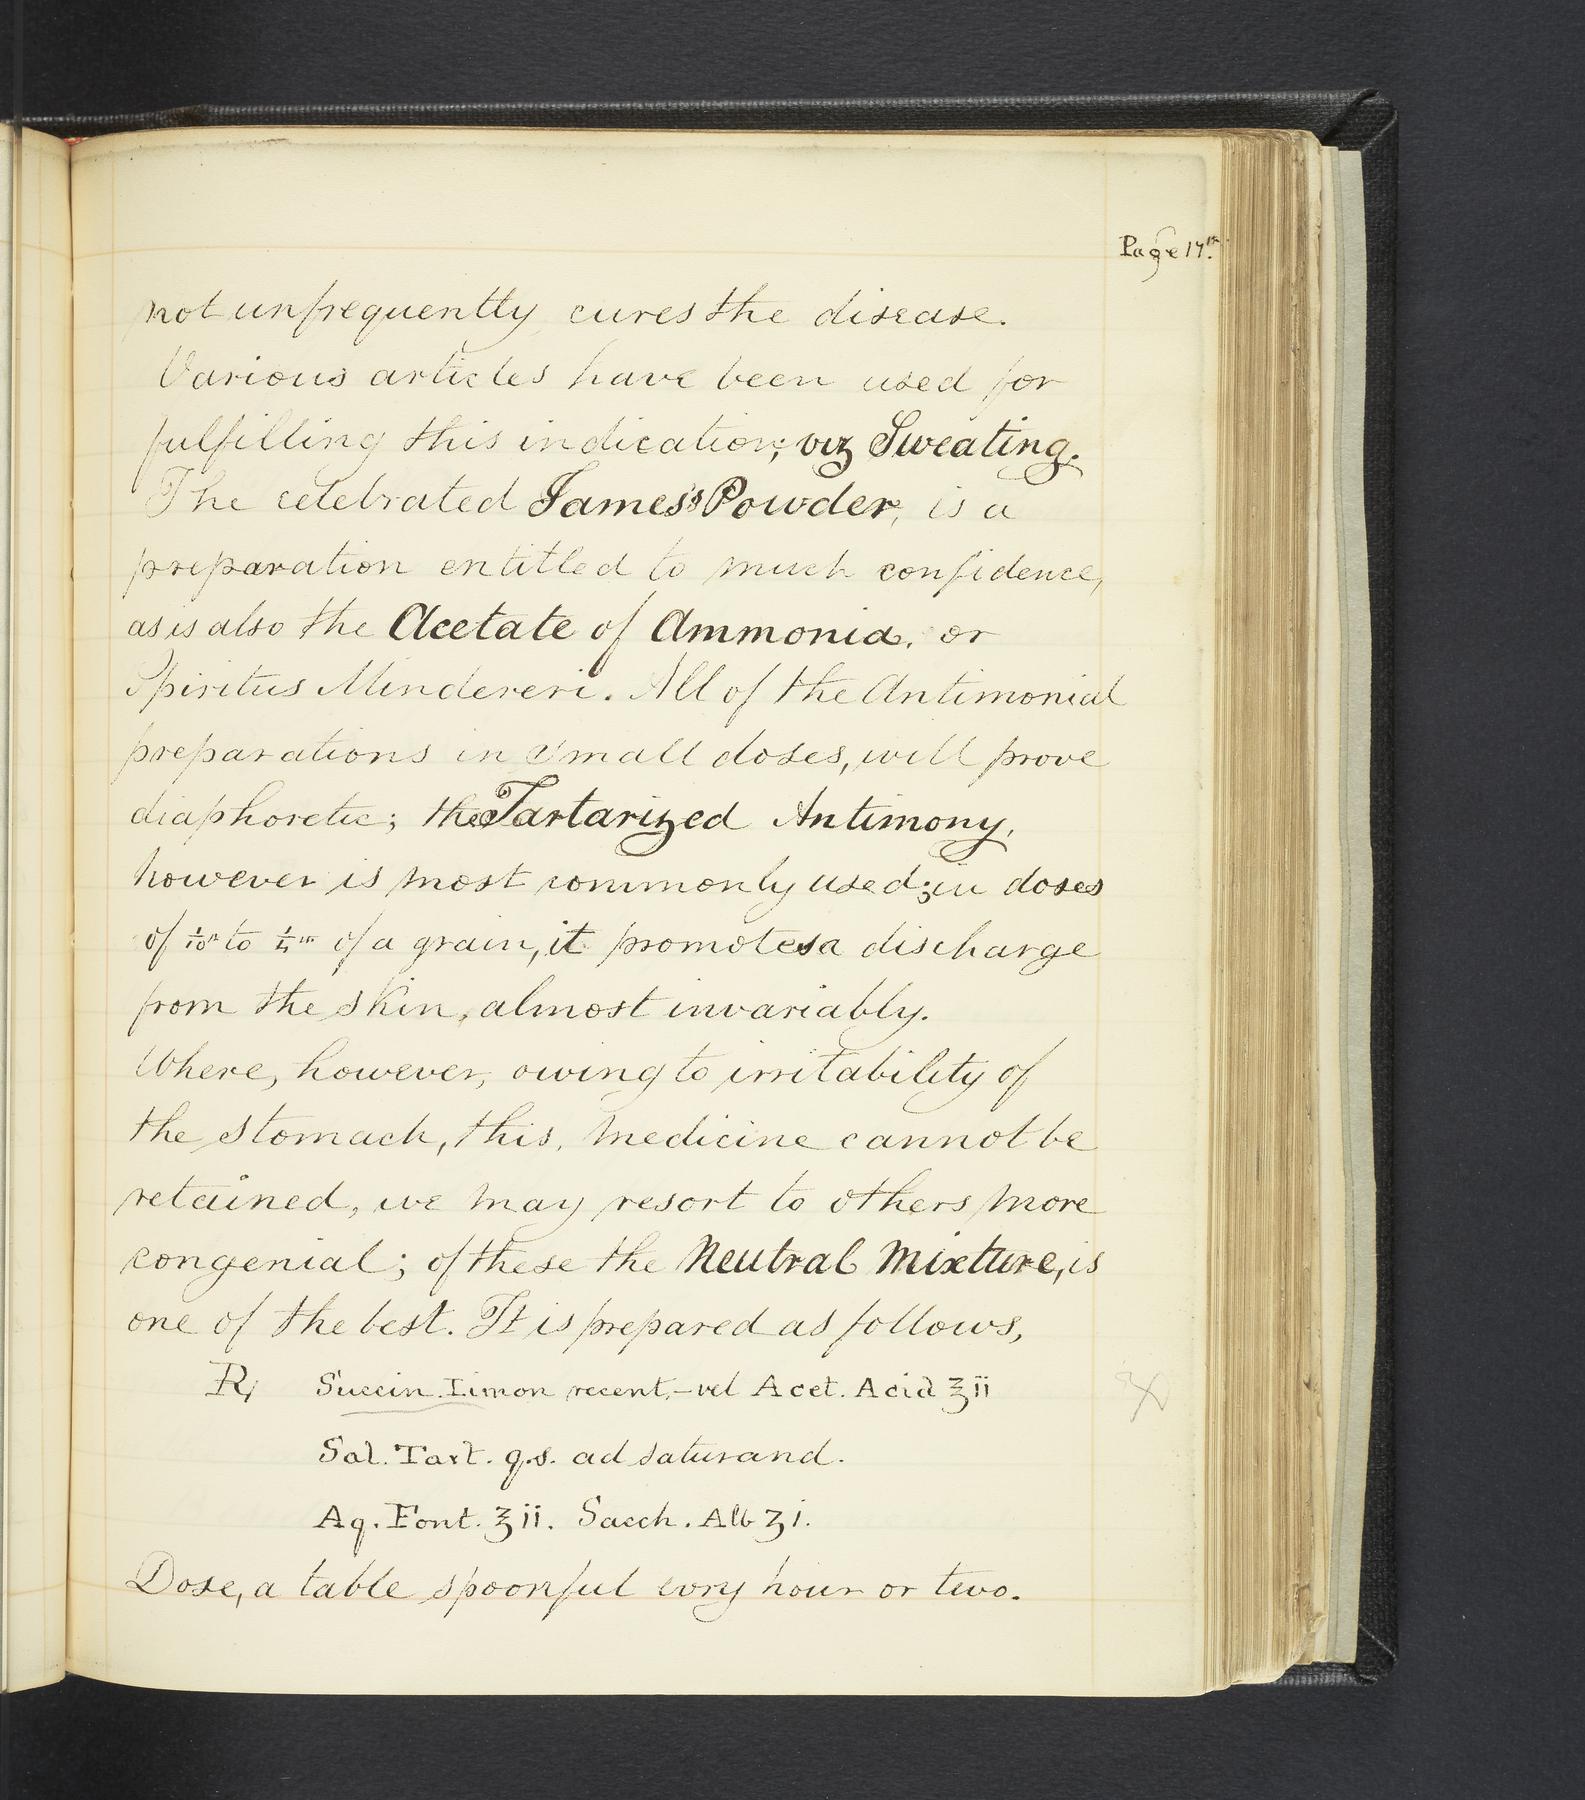 Page 17th.
not unfrequently cures the disease.
Various articles have been used for
fulfilling this indication; viz Sweating.
The celebrated James's Powder, is a
preparation entitled to much confidence,
as is also the Acetate of Ammonia, or
Spiritus Mindereri. All of the Antimonial
preparations in small doses, will prove
diaphoretic; the Tartarized Antimony,
however is most commonly used; in doses
of 1/10th to 1/4th of a grain, it promotes a discharge
from the skin, almost invariably.
Where, however, owing to irritability of
the stomach, this, medicine cannot be
retained, we may resort to others more
congenial; of these the Neutral Mixture, is
one of the best. It is prepared as follows,
℞ Succin Limon recent,- vel Acet. Acid ℥ii
Sal. Tart. q.s. ad saturand.
Aq. Font. ℥ii. Sacch. Alb ʒi.
Dose, a table spoonful evry hour or two.